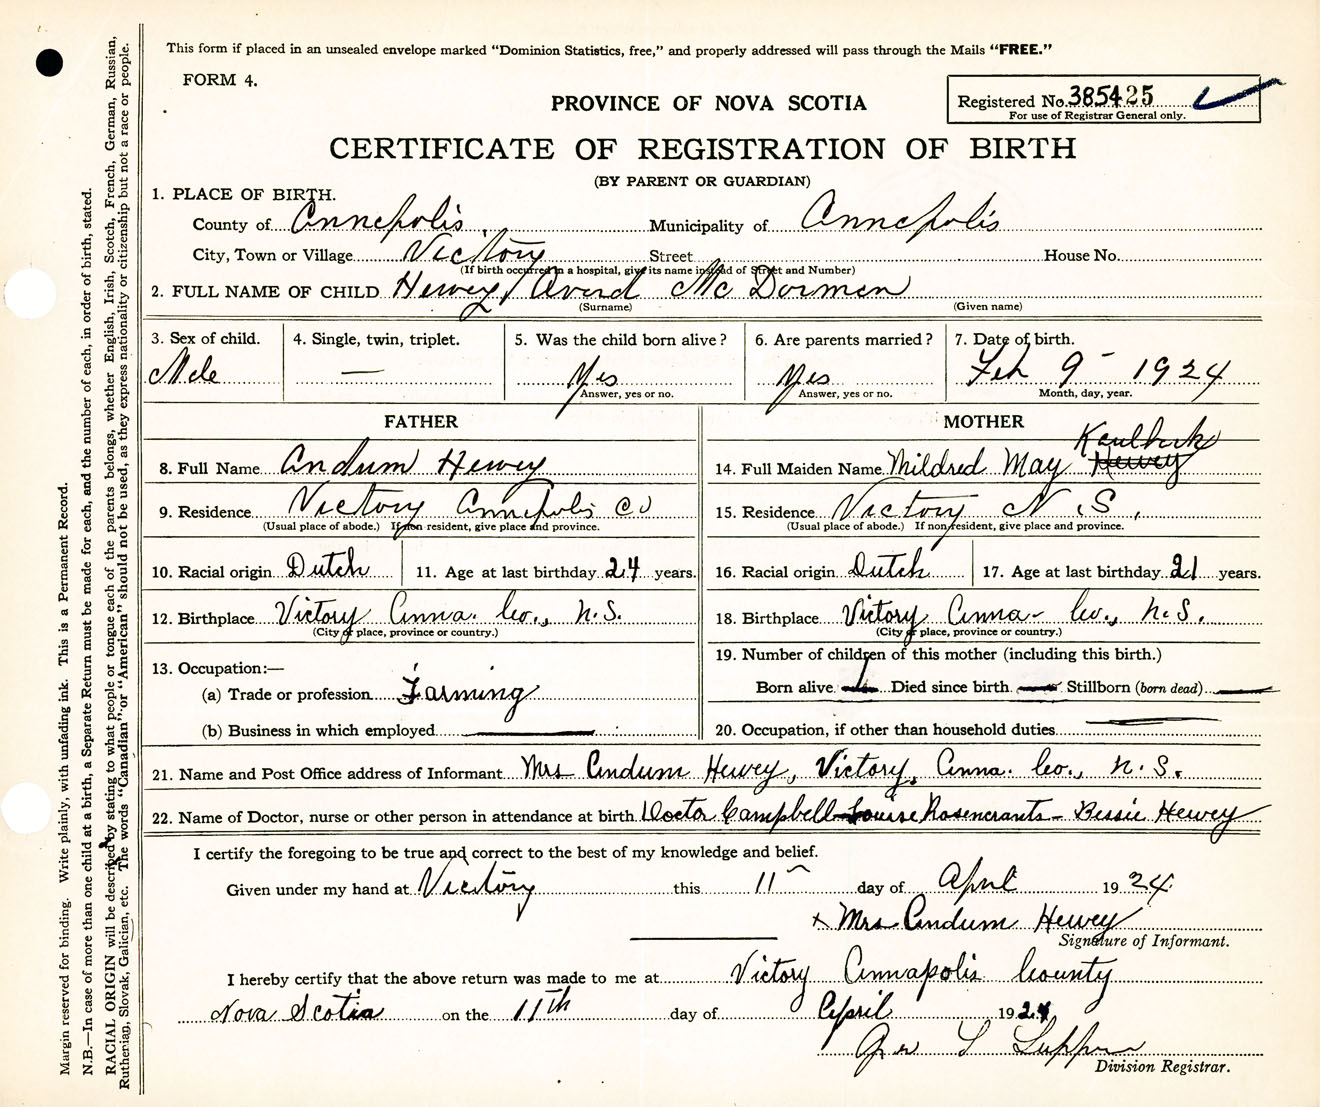 This form if placed in an unsealed envelope marked "Dominion Statistics, free," and properly addressed will pass through the Mails "FREE."
FORM 4.
Registered No. 385425
For use of Registrar General only.
PROVINCE OF NOVA SCOTIA
CERTIFICATE OF REGISTRATION OF BIRTH
(BY PARENT OR GUARDIAN)
1. PLACE OF BIRTH.
County of Annapolis Municipality of Annapolis
City, Town or Village Victory Street House No.
(If birth occurred in a hospital, give its name instead of Street and Number)
2. FULL NAME OF CHILD Hewey, Averd McDormen
(Surname) (Given name)
3. Sex of child. 4. Single, twin, triplet. 5. Was the child born alive? 6. Are parents married? 7. Date of birth.
Male — Yes Yes Feb 9 - 1924
Answer, yes or no. Answer, yes or no. Month, day, year.
FATHER MOTHER
8. Full Name Andum Hewey 14. Full Maiden Name Mildred May Hewey Kaulback
9. Residence Victory Annapolis Co 15. Residence Victory N.S.
(Usual place of abode.) If non resident, give place and province. (Usual place of abode.) If non resident, give place and province.
10. Racial origin Dutch 11. Age at last birthday 24 years. 16. Racial origin Dutch 17. Age at last birthday 21 years.
12. Birthplace Victory Anna. Co., N.S. 18. Birthplace Victory Anna- Co., N.S.
(City or place, province or country.) (City or place, province or country.)
13. Occupation:— 19. Number of children of this mother (including this birth.)
(a) Trade or profession Farming Born alive 1 Died since birth Stillborn (born dead)
(b) Business in which employed 20. Occupation, if other than household duties
21. Name and Post Office address of Informant Mrs Andum Hewey, Victory, Anna. Co., N.S.
22. Name of Doctor, nurse or other person in attendance at birth Doctor Campbell - Louise Rosencrants - Bessie Hewey
I certify the foregoing to be true and correct to the best of my knowledge and belief.
Given under my hand at Victory this 11 day of April 1924
x Mrs Andum Hewey
Signature of Informant.
I hereby certify that the above return was made to me at Victory Annapolis County
Nova Scotia on the 11th day of April 1924
Division Registrar.
Margin reserved for binding. Write plainly, with unfading ink. This is a Permanent Record.
N.B.—In case of more than one child at a birth, a Separate Return must be made for each, and the number of each, in order of birth, stated.
RACIAL ORIGIN will be described by stating to what people or tongue each of the parents belongs, whether English, Irish, Scotch, French, German, Russian,
Ruthenian, Slovak, Galician, etc. The words "Canadian" or "American" should not be used, as they express nationality or citizenship but not a race or people.